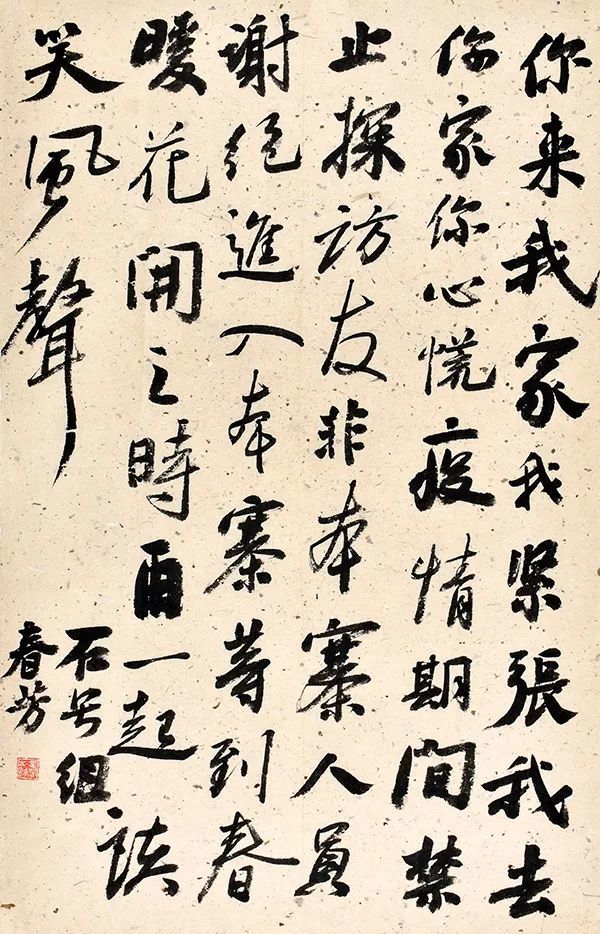 你来我家我紧張我去
你家你心慌疫情期間禁
止探访友非本寨人員
谢绝進入本寨等到春
暖花開之時再一起談
笑風聲
石组
春芳